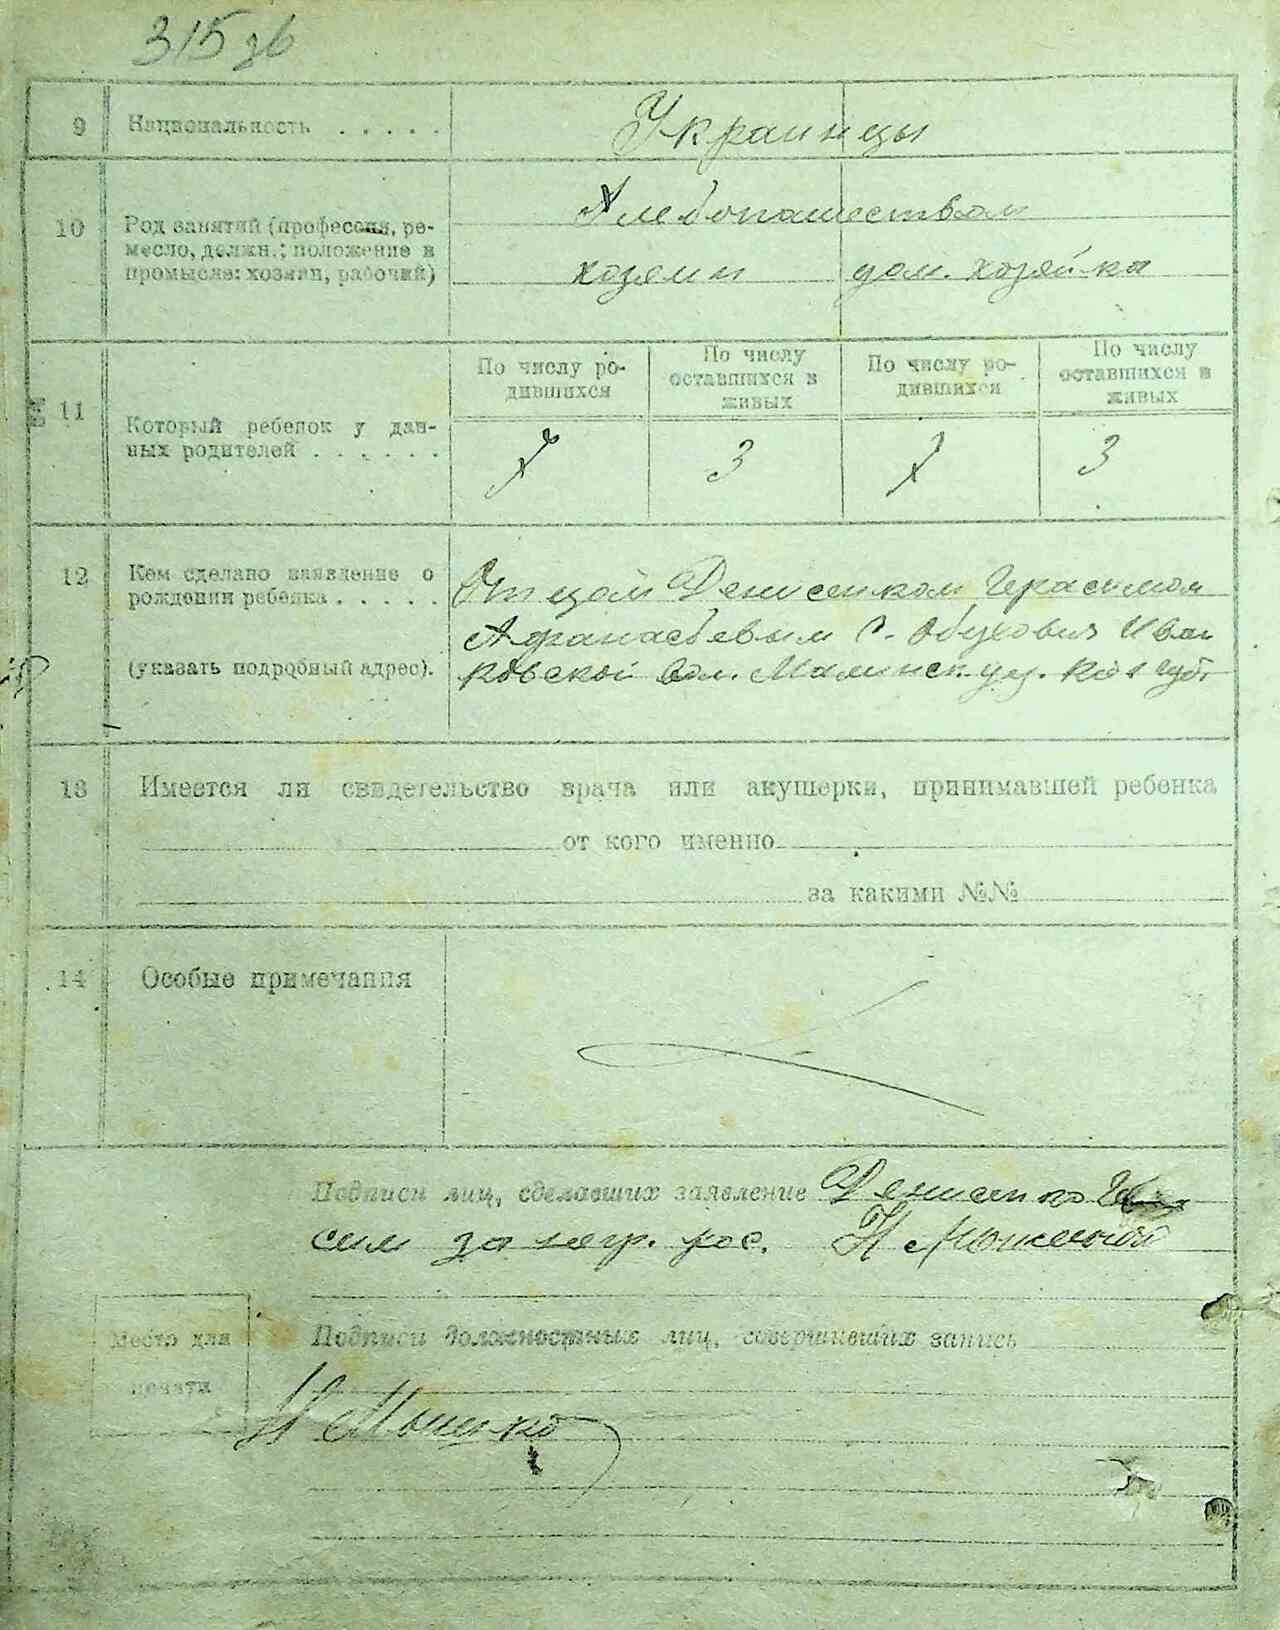 315 зв
9 Национальность . . . . . Украинцы
10 Род занятий (профессия, ре-
месло, должн.; положение в
промысле: хозяин, рабочий)
Хлебопашеством
хозяин дом. хозяйка
11 Который ребенок у дан-
ных родителей . . . . . .
По числу ро-
дившихся
По числу
оставшихся в
живых
По числу ро-
дившихся
По числу
оставшихся в
живых
3 3
12 Кем сделано заявление о
рождении ребенка . . . . .
(указать подробный адрес).
Отцом Денисенком Герасимом
Афанасьевым с. Обуховия Иван
ковской вол. Малинск. уез. Киев губ.
13 Имеется ли свидетельство врача или акушерки, принимавшей ребенка
от кого именно
за какими №№
14 Особые примечания
Подписи лиц, сделавших заявление Денисенко
сим за негр. рос. Н
Место для
печати
Подписи должностных лиц, совершивших запись
Н